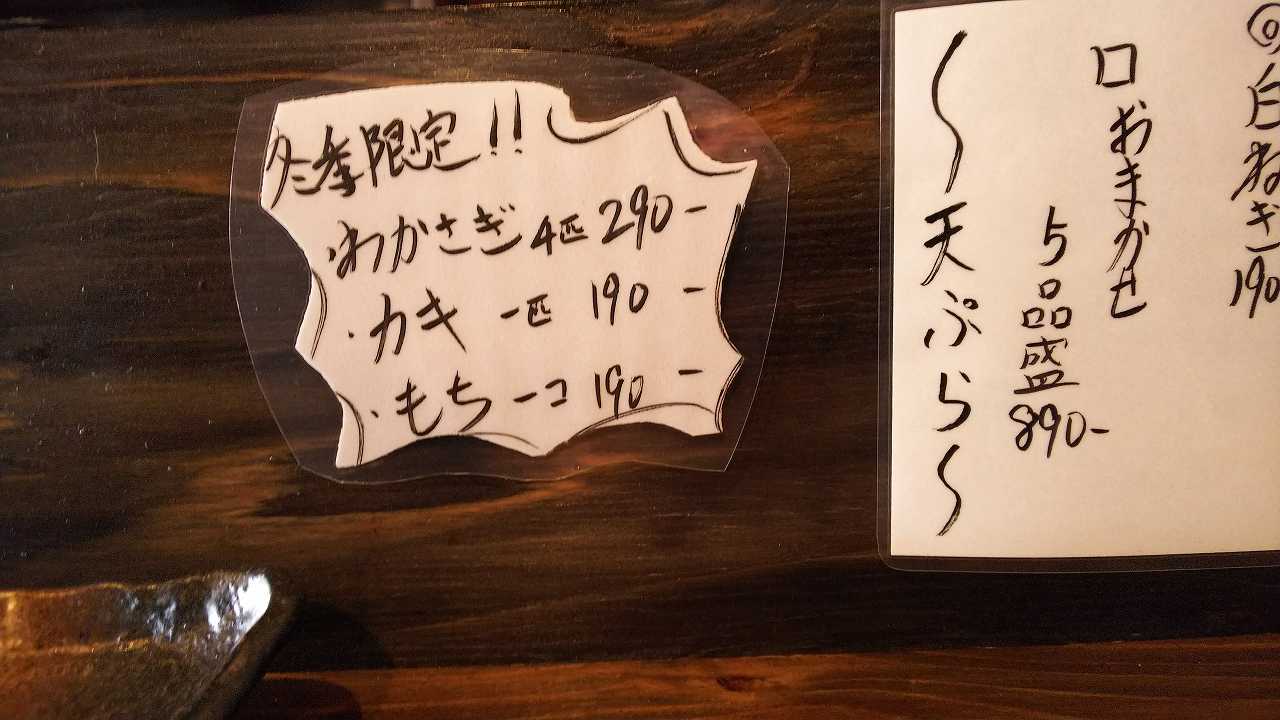 冬季限定!!
・わかさぎ 4匹 290-
・カキ 一匹 190-
・もち 一コ 190-
◎白ねぎ190
口おまかせ
5品盛890-
〜天ぷら〜